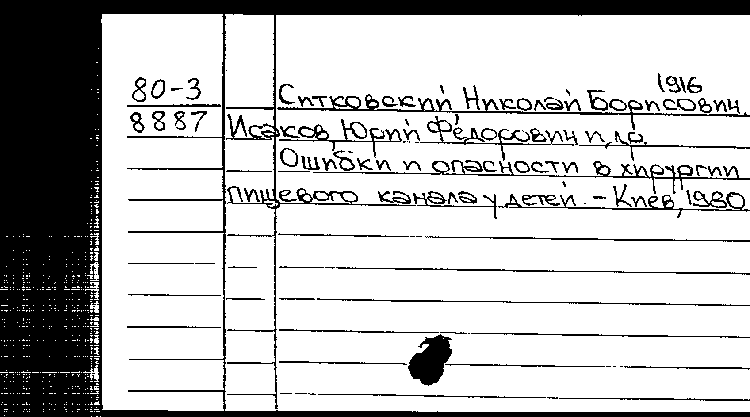 1916
80-3 Ситковский Николай Борисович,
8887 Исаков, Юрий Фёдорович и др.
Ошибки и опасности в хирургии
пищевого канала у детей. - Киев, 1980